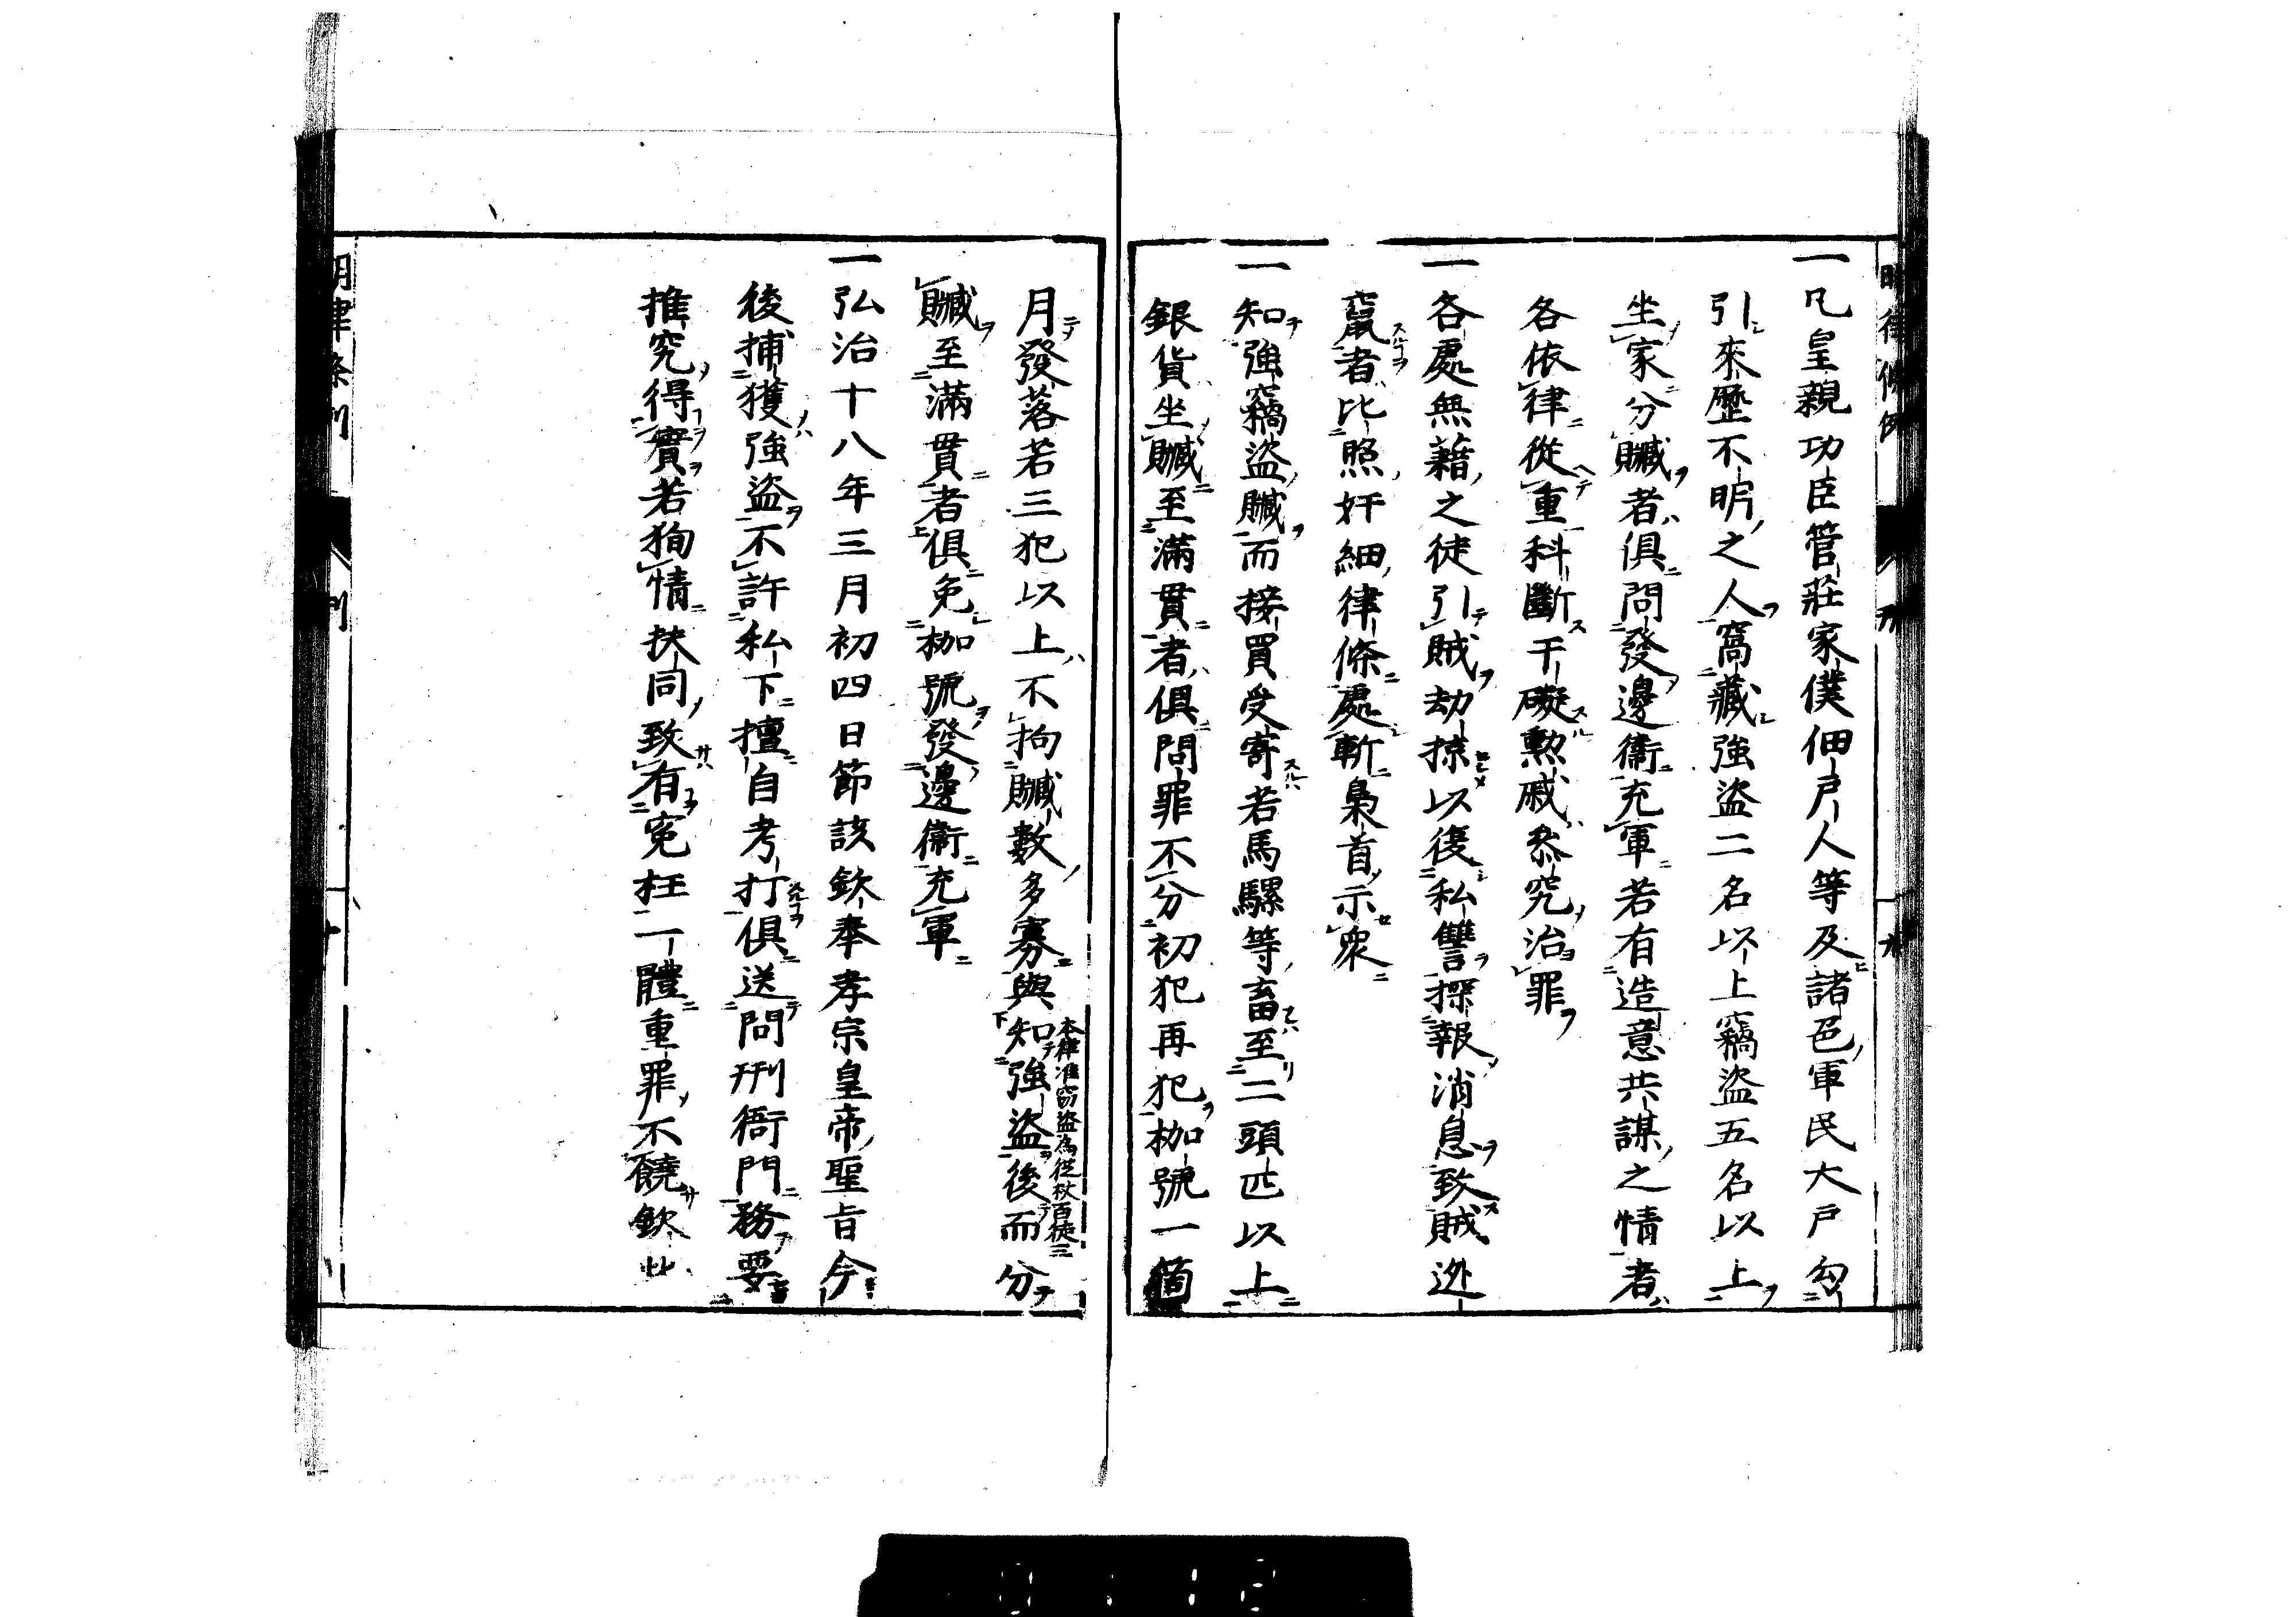 一凡皇親功臣管莊家僕佃戶人等及諸邑軍民大戶勾
引來歷不明之人窩藏強盜二名以上竊盜五名以上
坐家分贓者俱問發邊衞充軍若有造意共謀之情者
各依律從重科斷干礙勲戚叅究治罪
一各處無藉之徒引賊劫掠以復私讐探報消息致賊迯
竄者比照奸細律條處斬梟首示衆
一知強竊盜贓而接買受寄若馬騾等畜至二頭匹以上
銀貨坐贓至滿貫者俱問罪不分初犯再犯枷號一箇
月發落若三犯以上不拘贓數多寡與知強盜後而分
本律准窃盜為從杖百徒三
贓至滿貫者俱免枷號發邊衞充軍
一弘治十八年三月初四日節該欽奉孝宗皇帝聖旨今
後捕獲強盜不許私下擅自考打俱送問刑衙門務要
推究得實若狥情扶同致有寃枉一體重罪不饒欽此